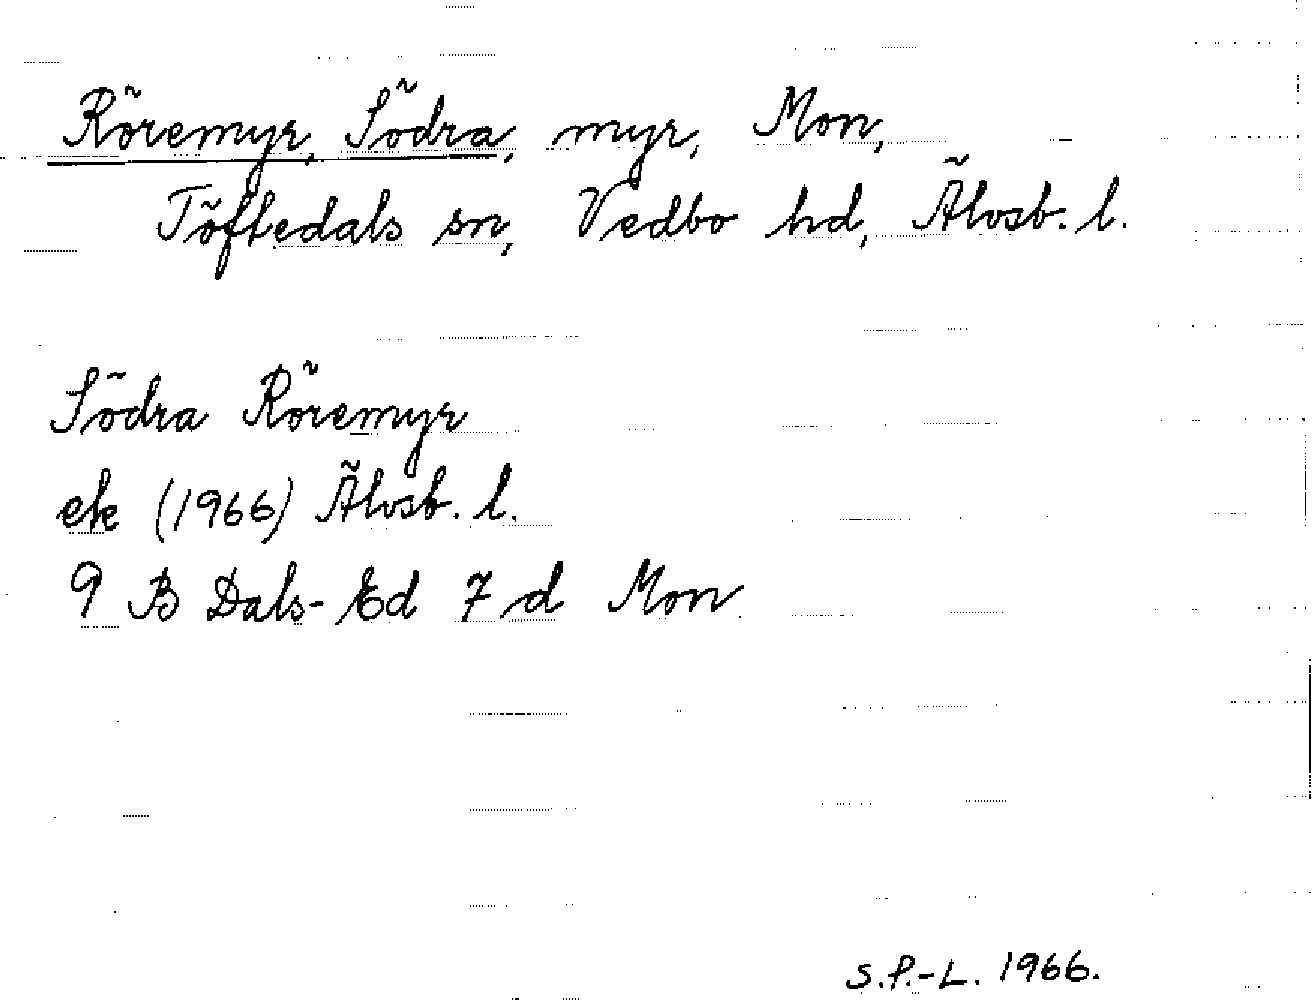 Röremyr, Södra, myr, Mon,
Töftedals sn, Vedbo hd, Älvsb. l.
Södra Röremyr
ek (1966) Älvsb. l.
9 B Dals-Ed 7 d Mon
S.P.-L. 1966.